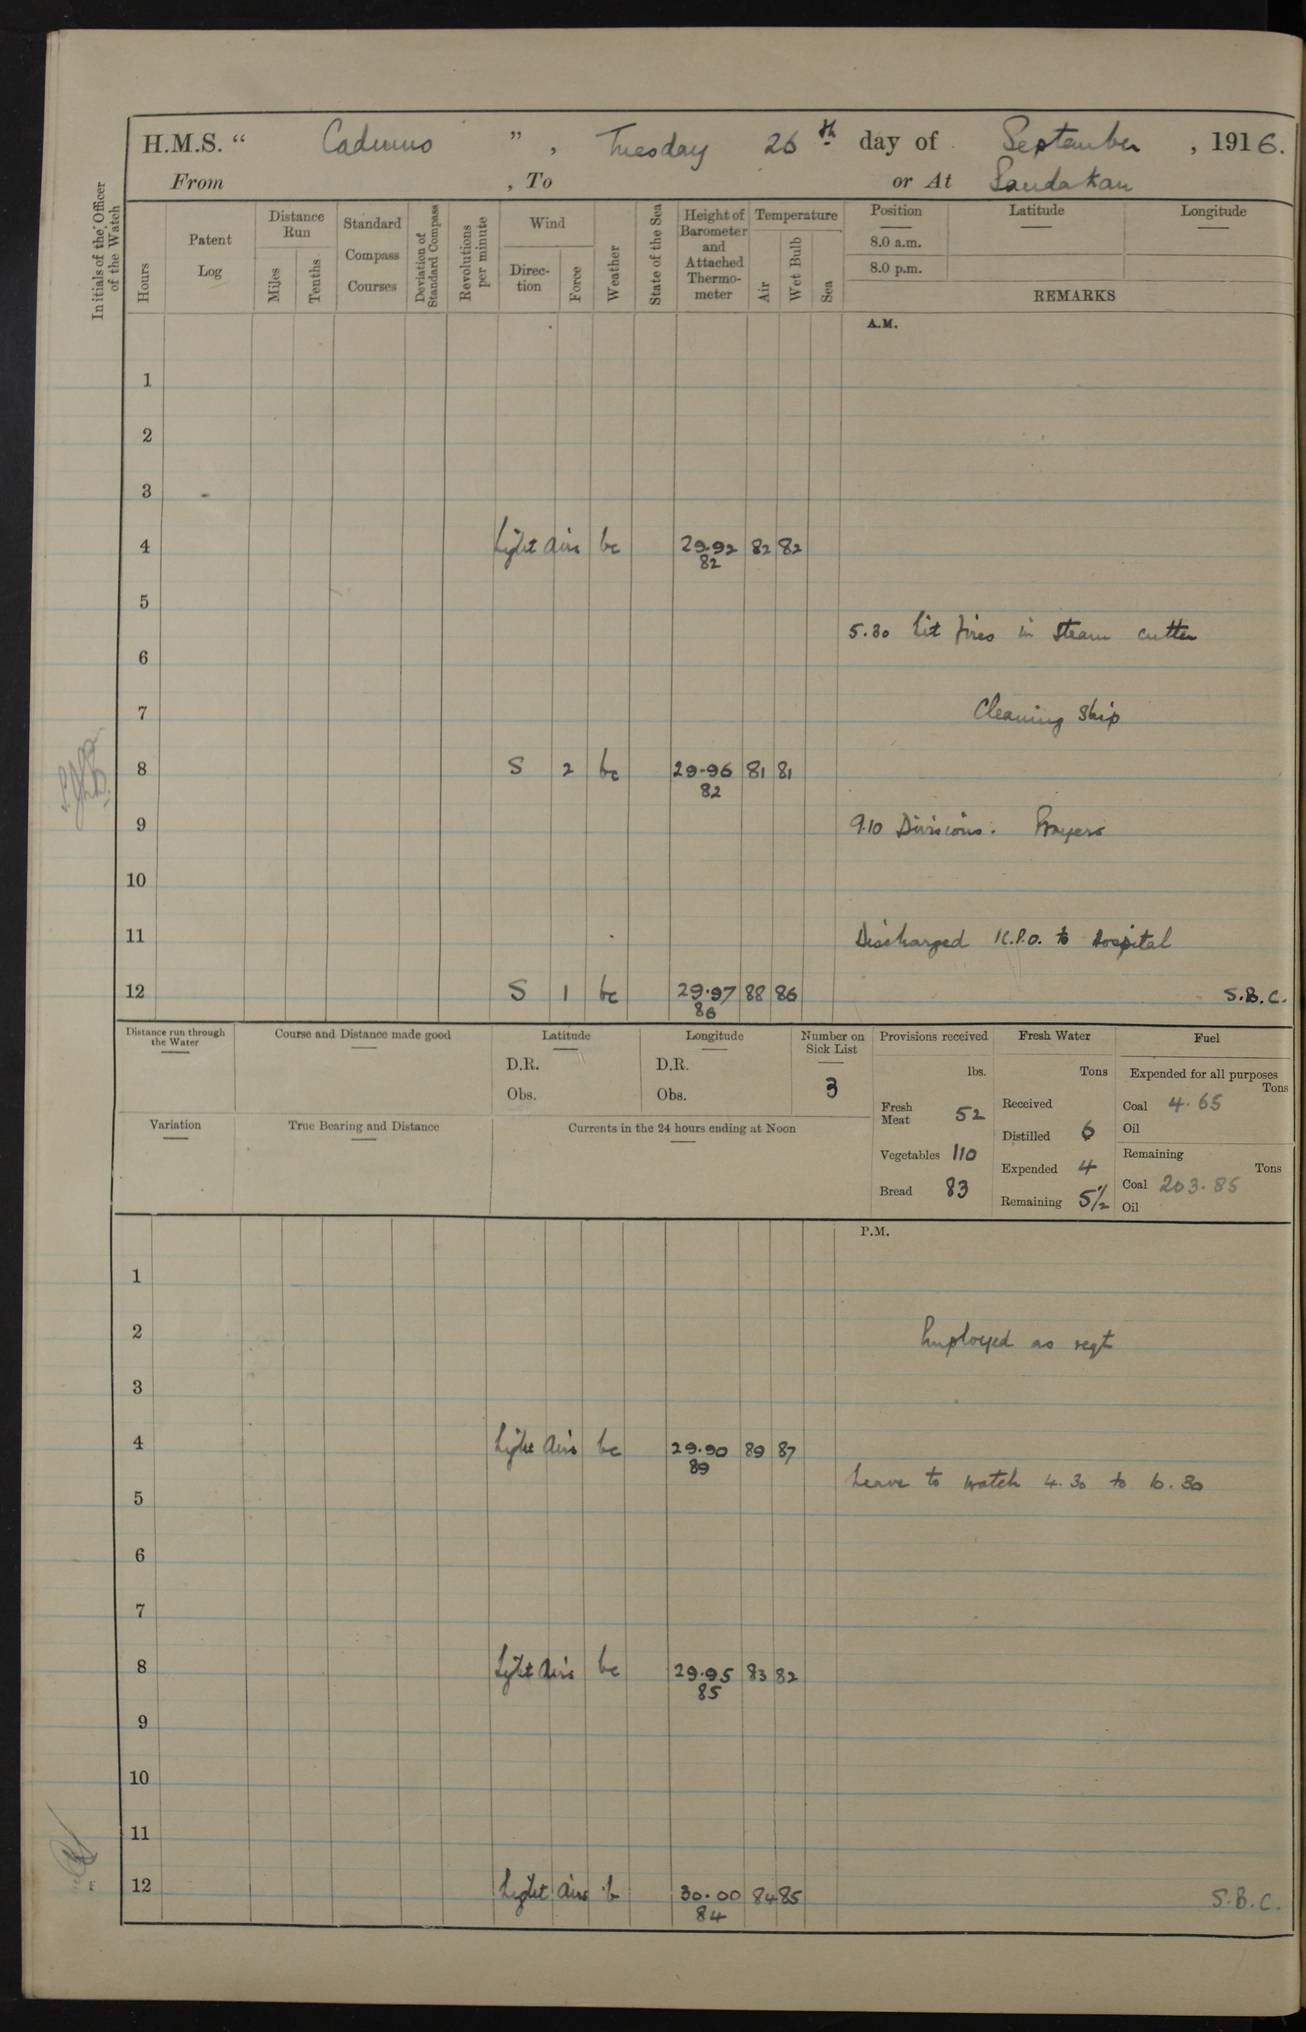 H.M.S. “ Cadmus ”, Tuesday 26th day of September, 1916.
From , To or At Sandakan
Initials of the Officer of the Watch
Hours
Patent Log
Distance Run
Miles
Tenths
Standard Compass Courses
Deviation of Standard Compass
Revolutions per minute
Wind
Direc-tion
Force
Weather
State of the Sea
Height of Barometer and Attached Thermo-meter
Temperature
Air
Wet Bulb
Sea
Position
8.0 a.m.
8.0 p.m.
Latitude
Longitude
REMARKS
A.M.
1
2
3
4 Light airs bc 29.92 82 82
82
5
5.30 Lit fires in steam cutter
6
7 Cleaning ship
8 S 2 bc 29.96 81 81
82
9 9.10 Divisions. Prayers
10
11 Discharged K.P.O. to hospital
12 S 1 bc 29.97 88 86 S.B.C.
86
Distance run through the Water
Course and Distance made good
Latitude
D.R.
Obs.
Longitude
D.R.
Obs.
Number on Sick List
3
Variation
True Bearing and Distance
Currents in the 24 hours ending at Noon
Provisions received
lbs.
Fresh Meat 52
Vegetables 110
Bread 83
Fresh Water
Tons
Received
Distilled 6
Expended 4
Remaining 51/2
Fuel
Expended for all purposes
Tons
Coal 4.65
Oil
Remaining
Tons
Coal 203.85
Oil
P.M.
1
2 Employed as reqt
3
4 Light airs bc 29.90 89 87
89
Leave to watch 4.30 to 6.30
5
6
7
8 Light airs bc 29.95 83 82
85
9
10
11
12 Light airs b 30.00 84 85 S.B.C.
84